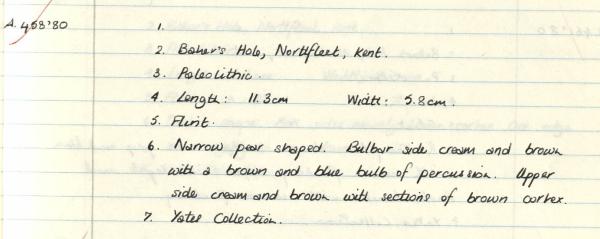 A.458'80
1.
2. Baker's Hole, Northfleet, Kent.
3. Paleolithic.
4. Length: 11.3cm Width: 5.8cm.
5. Flint.
6. Narrow pear shaped. Bulbar side cream and brown
with a brown and blue bulb of percussion. Upper
side cream and brown with sections of brown cortex.
7. Yates Collection.